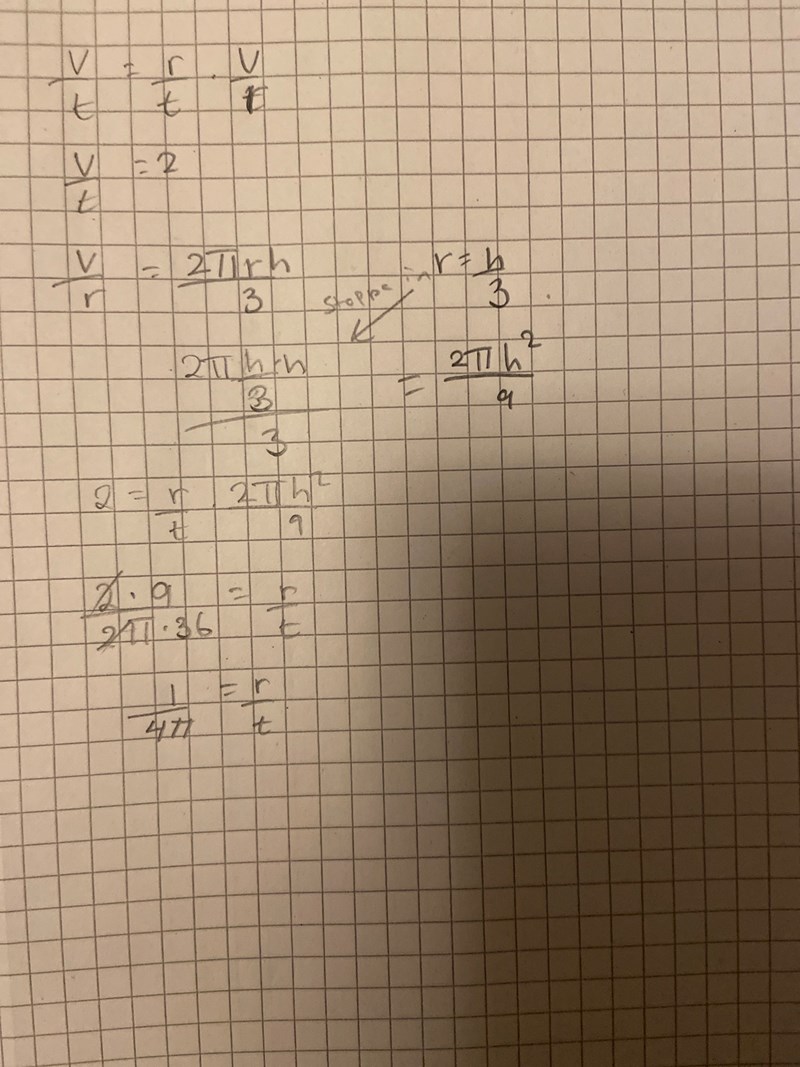 V/t = r/t · V/t
V/t = 2
V/r = 2πrh/3
stoppa in r = h/3 .
(2π h/3 · h)/3 = 2πh²/9
2 = r/t · 2πh²/9
2·9/2π·36 = r/t
1/4π = r/t